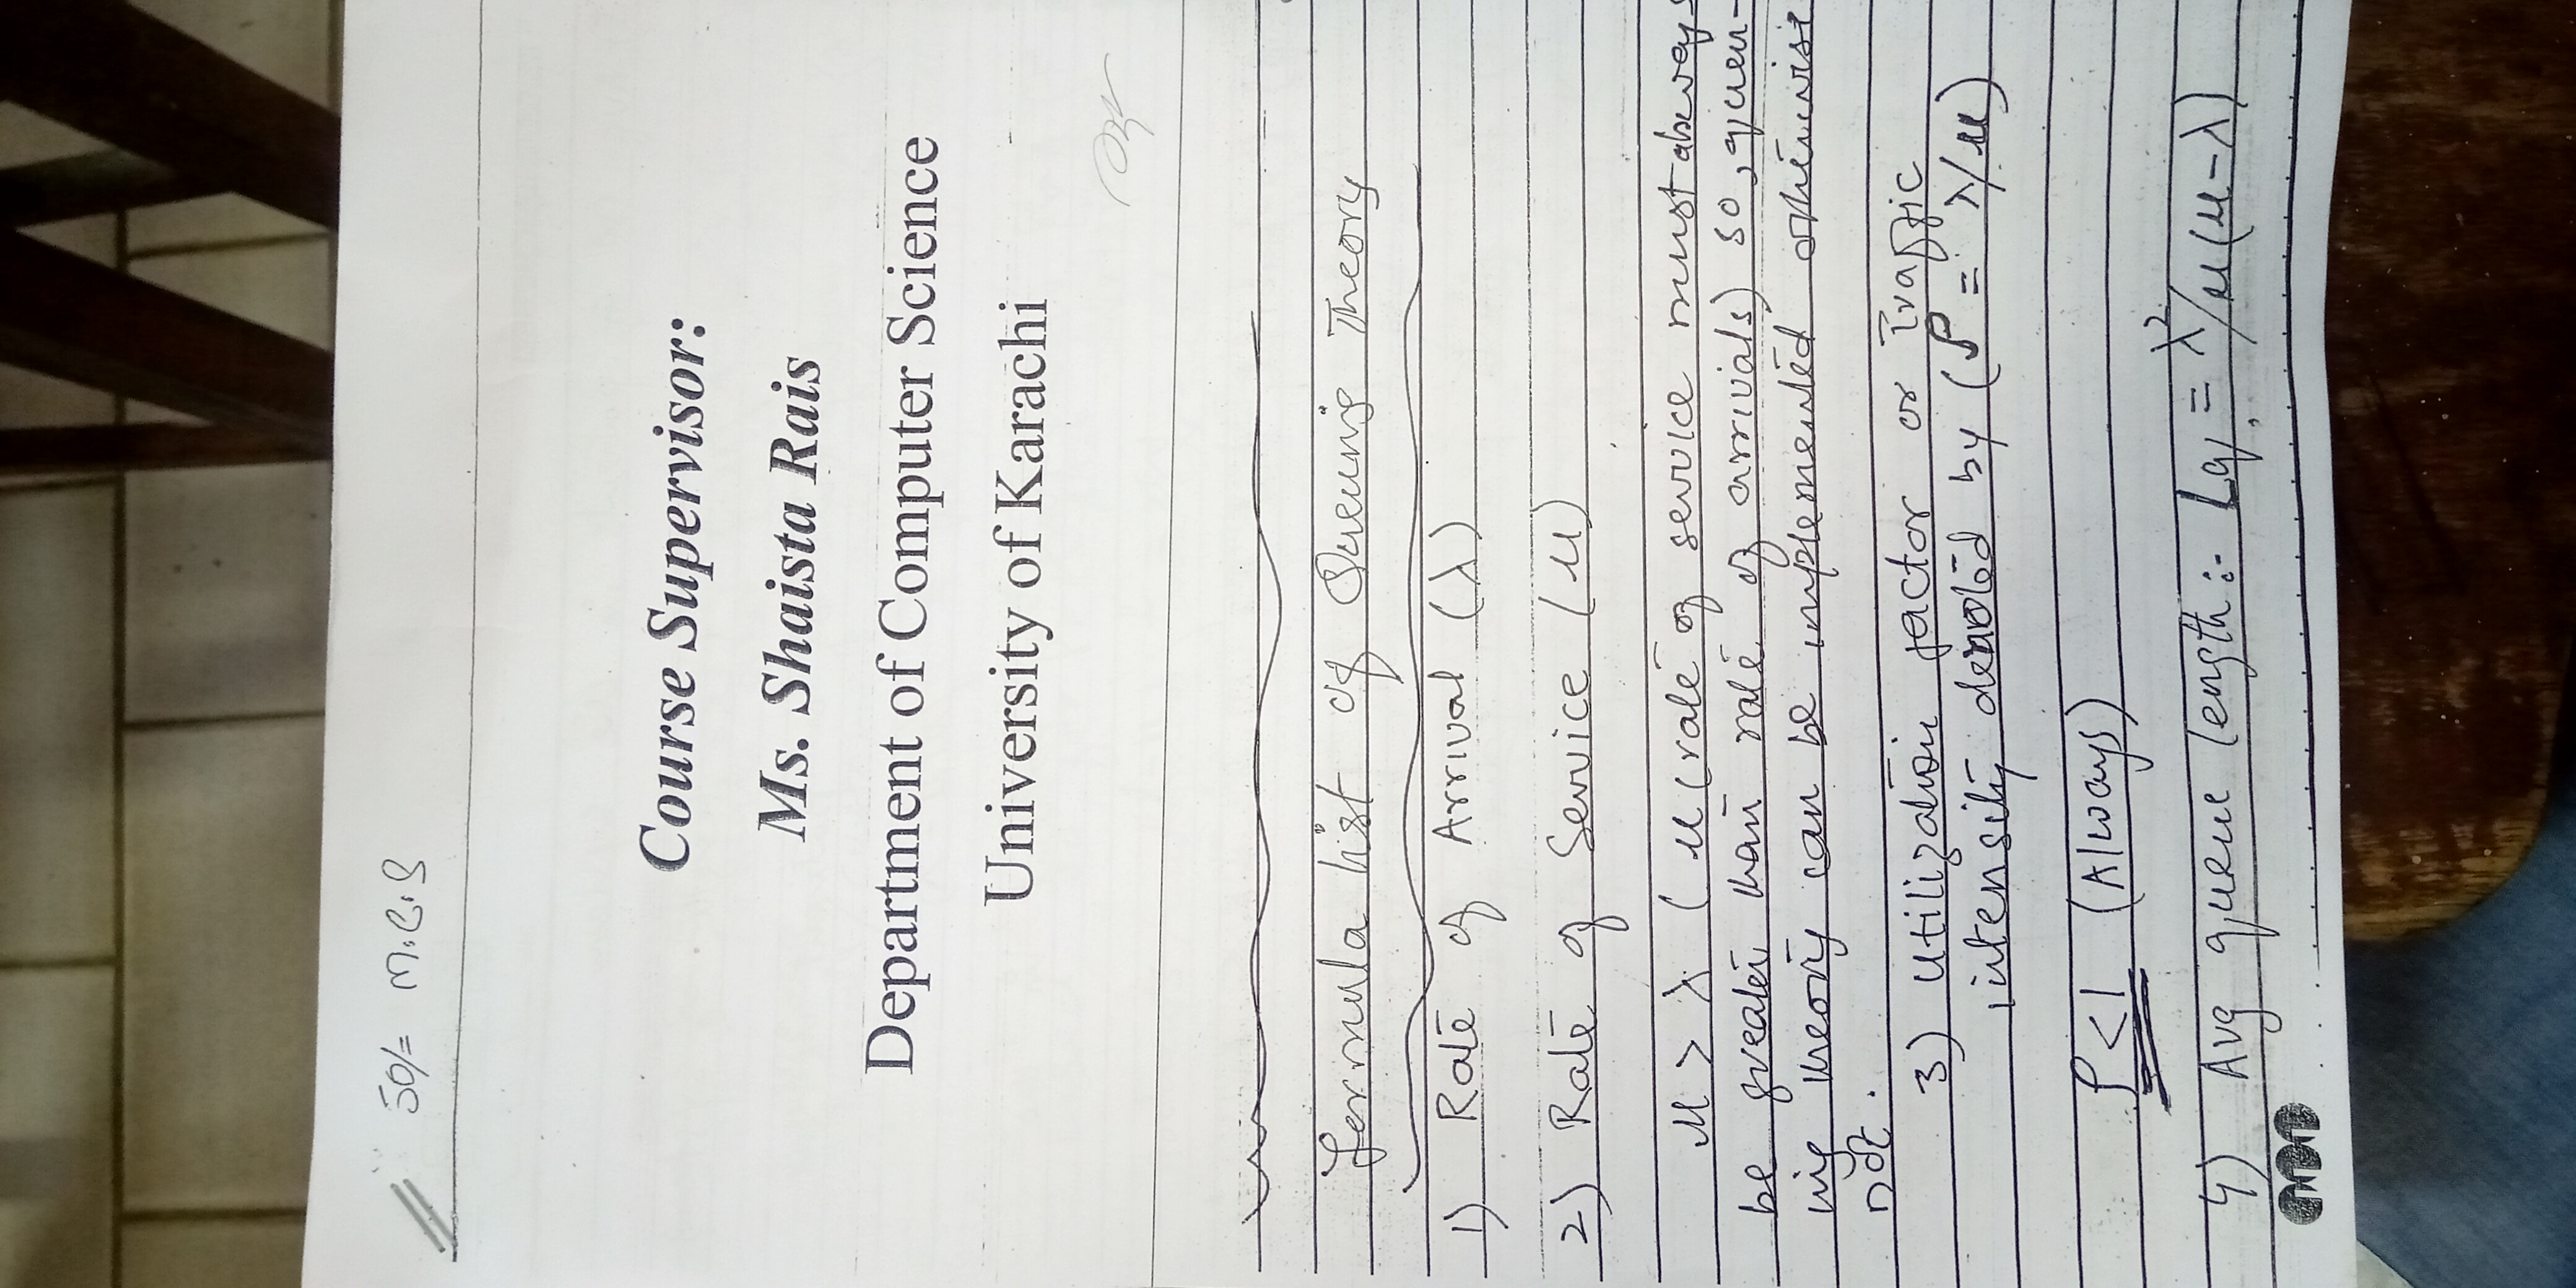 50/= M.C.S
Course Supervisor:
Ms. Shaista Rais
Department of Computer Science
University of Karachi
Formula list of Queuing Theory
1) Rate of Arrival (λ)
2) Rate of Service (μ)
μ > λ ( μ (rate of service must always
be greater than rate of arrivals) so, queu-
ing theory can be implemented otherwise
not.
3) Utilization factor or Traffic
intensity denoted by (ρ = λ/μ)
ρ < 1 (Always)
4) Avg queue length :- Lq = λ²/μ(μ-λ)